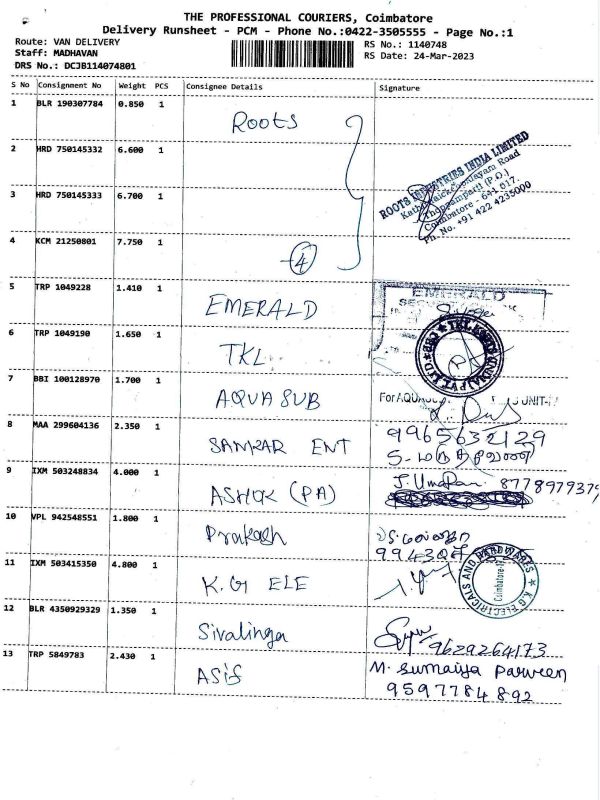 THE PROFESSIONAL COURIERS, Coimbatore
Delivery Runsheet - PCM - Phone No.:0422-3505555 - Page No.:1
Route: VAN DELIVERY
RS No.: 1140748
Staff: MADHAVAN
RS Date: 24-Mar-2023
DRS No.: DCJB114074801
S No Consignment No Weight PCS Consignee Details Signature
1 BLR 190307784 0.850 1 Roots
2 HRD 750145332 6.600 1
ROOTS INDUSTRIES INDIA LIMITED
Thoppampatti (P.O.)
Coimbatore - 641 017.
Ph. No. +91 422 4235000
3 HRD 750145333 6.700 1
4 KCM 21250801 7.750 1 4
5 TRP 1049228 1.410 1 EMERALD EMERALD
6 TRP 1049190 1.650 1 TKL
7 BBI 100128970 1.700 1 AQUA SUB For AQUA UNIT-
8 MAA 299604136 2.350 1 SANKAR ENT 9965632129
9 IXM 503248834 4.000 1 ASHOK (PA) J. Uma 8778979379
10 VPL 942548551 1.800 1 Prakash
11 IXM 503415350 4.800 1 K.G ELE
K.G ELECTRICALS AND HARDWARES
Coimbatore
12 BLR 4350929329 1.350 1 Sivalinga 9629264173
13 TRP 5849783 2.430 1 ASif M. Sumaiya Parveen
9597784892